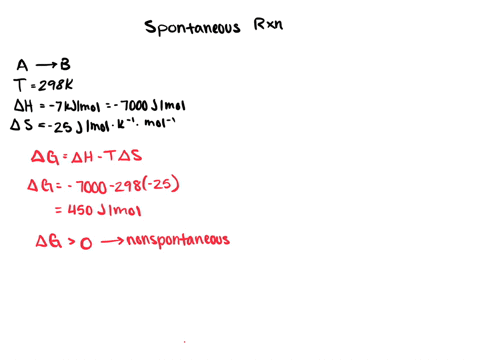 Spontaneous Rxn
A → B
T = 298K
ΔH = -7kJ/mol = -7000 J/mol
ΔS = -25 J/mol·K⁻¹·mol⁻¹
ΔG = ΔH - TΔS
ΔG = -7000-298(-25)
= 450 J/mol
ΔG > 0 → nonspontaneous